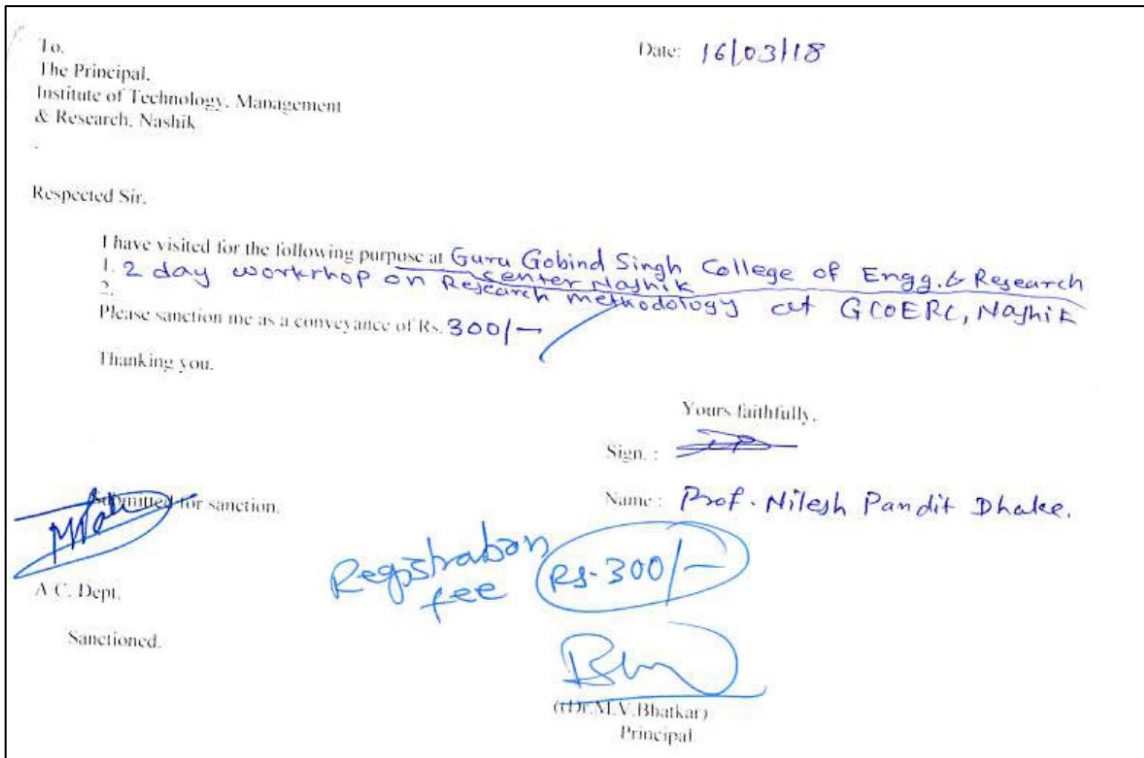 To,
The Principal,
Institute of Technology, Management
& Research, Nashik
.
Date: 16/03/18
Respected Sir,
I have visited for the following purpose at Guru Gobind Singh College of Engg. & Research
Center Nashik
1. 2 day workshop on Research methodology at GCOERC, Nashik
2.
Please sanction me as a conveyance of Rs. 300/-
Thanking you.
Yours faithfully,
Sign. :
Name : Prof. Nilesh Pandit Dhake.
Submitted for sanction.
A.C. Dept.
Registration
fee Rs. 300/-
Sanctioned.
(Dr.M.V.Bhatkar)
Principal